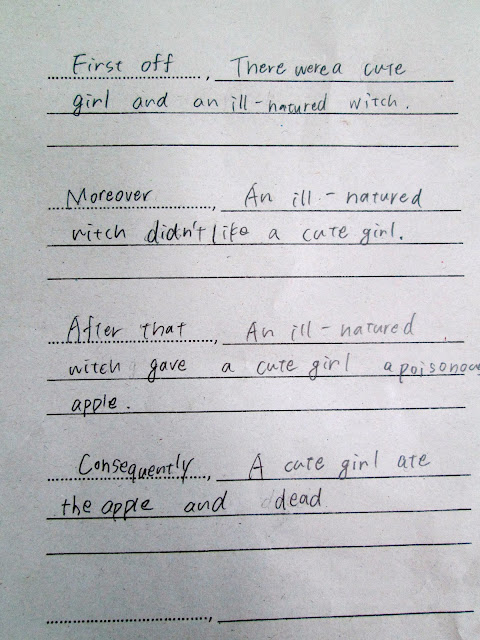 First off, There were a cute
girl and an ill-natured witch.
Moreover, An ill-natured
witch didn't like a cute girl.
After that, An ill-natured
witch gave a cute girl a poisonou
apple.
Consequently, A cute girl ate
the apple and dead